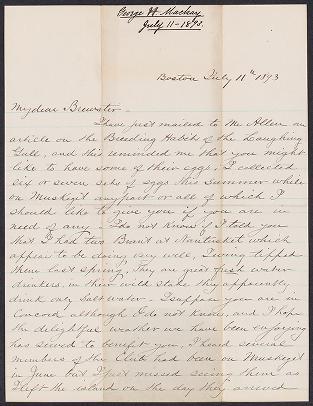 George H. Mackay
July 11-1893.
Boston July 11th 1893
My dear Brewster -
I have just mailed to Mr Allen an
article on the Breeding Habits of the Laughing
Gull, and this reminded me that you might
like to have some of their eggs, I collected
six or seven sets of eggs this Summer while
on Muskeget any part or all of which I
should like to give you if you are in
need of any. I do not know if I told you
that I had two Brant at Nantucket which
appear to be doing very well, I wing tipped
them last spring, They are great fresh water
drinkers, in their wild state they apparently
drink only salt water. I suppose you are in
Concord although I do not know, and I hope
the delightful weather we have been enjoying
has served to benefit you, I heard several
members of the Club had been on Muskeget
in June but I just missed seeing them as
I left the island on the day they arrived